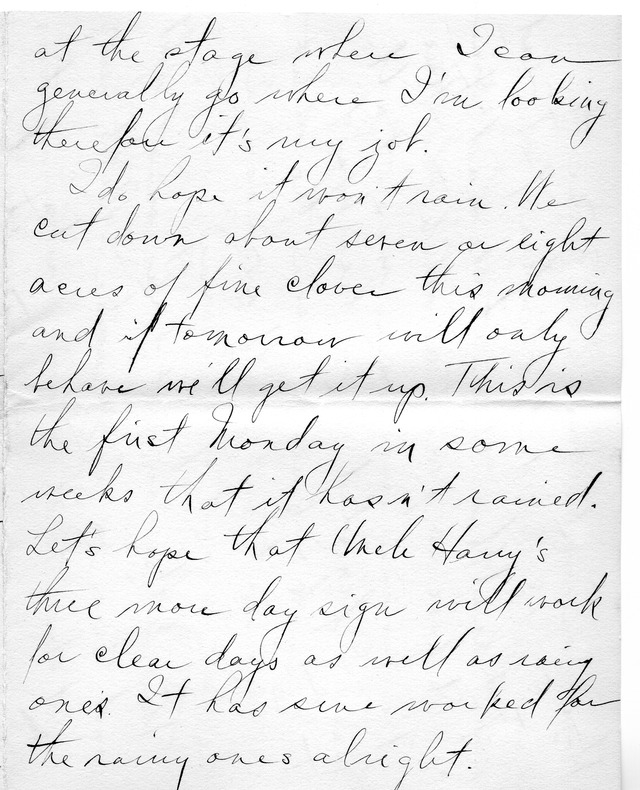 at the stage where I can
generally go where I'm looking
therefore it's my job.
I do hope it won't rain. We
cut down about seven or eight
acres of fine clover this morning
and if tomorrow will only
behave we'll get it up. This is
the first Monday in some
weeks that it hasn't rained.
Let's hope that Uncle Harry's
three more day sign will work
for clear days as well as rainy
ones. It has sure worked for
the rainy ones alright.